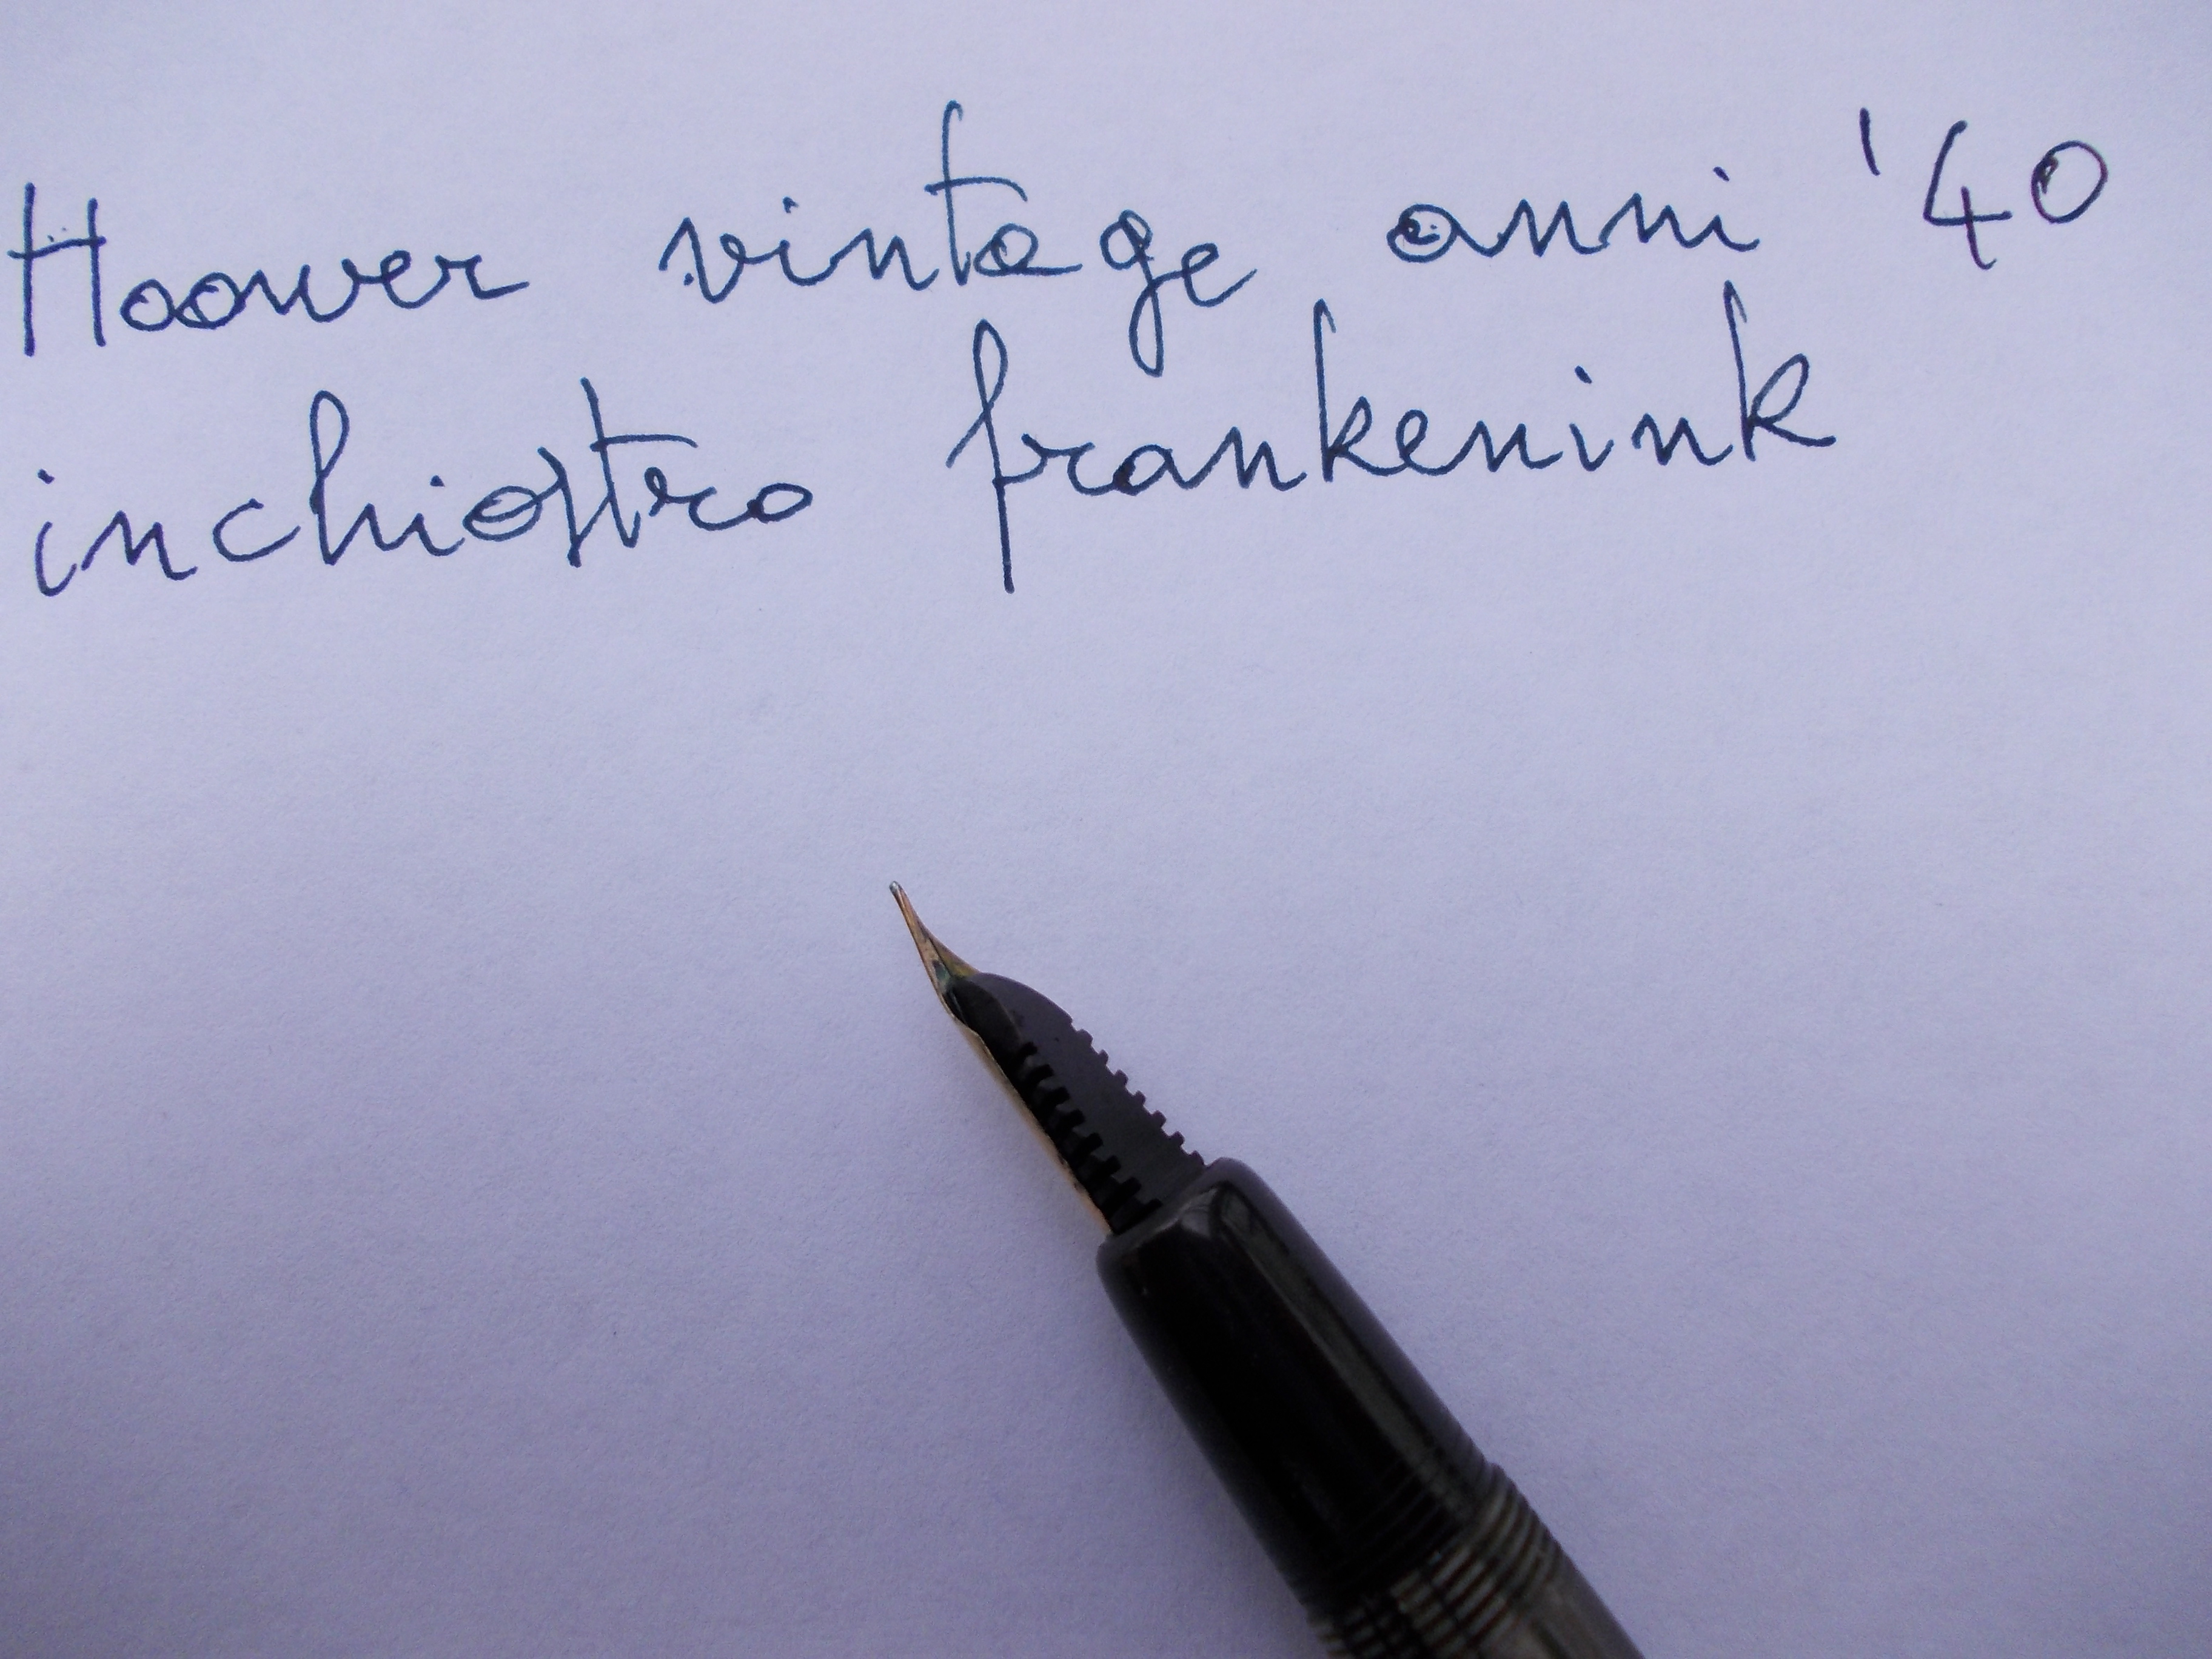 Hoover vintage anni '40
inchiostro frankenink